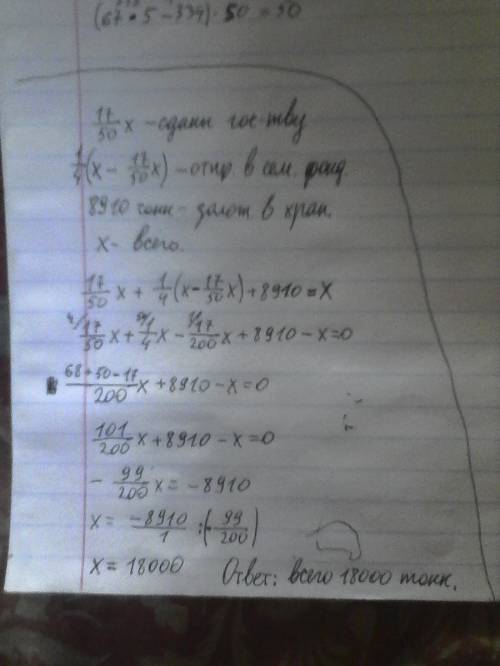 (67 • 5 - 334) • 50 = 50
17/50 x - сданы гос-тву
1/4 (x - 17/50 x) - отпр. в сем. фонд.
8910 тонн - залож в хран.
x - всего.
17/50 x + 1/4 (x - 17/50 x) + 8910 = x
4/ 17/50 x + 50/ 1/4 x - 1/ 17/200 x + 8910 - x = 0
68 + 50 - 17/200 x + 8910 - x = 0
101/200 x + 8910 - x = 0
- 99/200 x = -8910
x = -8910/1 : (- 99/200)
x = 18000 Ответ: всего 18000 тонн.